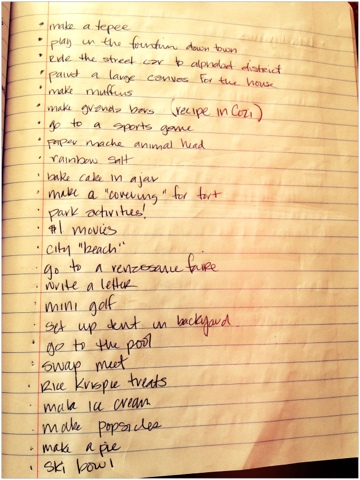 • make a tepee
• play in the fountain down town
• Ride the street car to alphabet district
• paint a large canvas for the house
• make muffins
• make granola bars (recipe in Cozi)
• go to a sports game
• paper mache animal head
• rainbow salt
• bake cake in a jar
• make a "covering" for fort
• park activities!
• $1 movies
• city "beach"
• go to a renessanse faire
• write a letter
• mini golf
• set up tent in backyard
• go to the pool
• swap meet
• Rice Krispie treats
• make ice cream
• make popsicles
• make a pie
• ski bowl